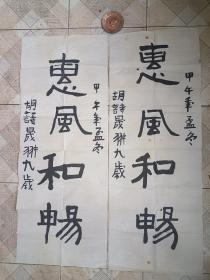 甲午年孟冬
惠風和暢
胡詩晟九歲
甲午年孟冬
惠風和暢
胡詩晟九歲